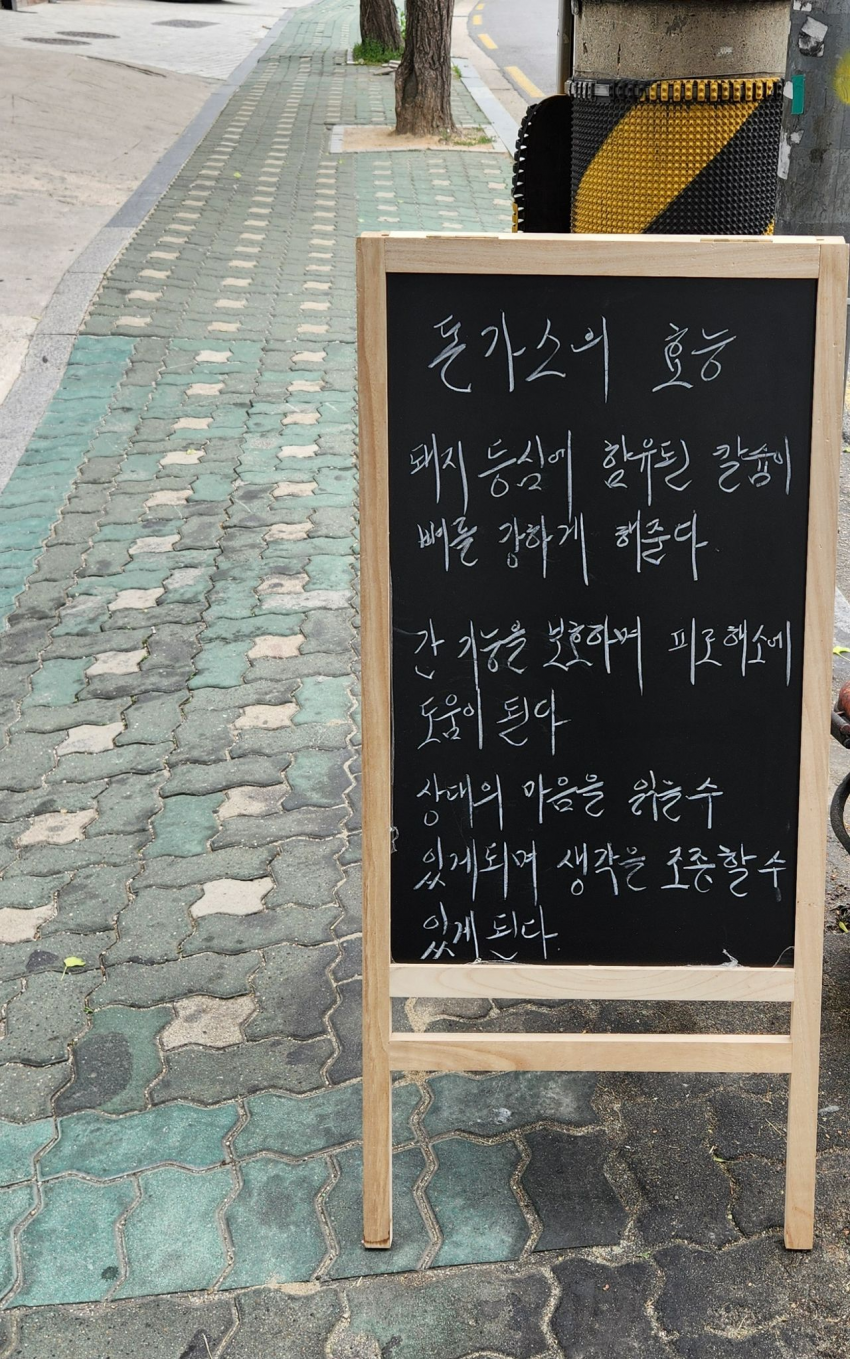 돈가스의 효능
돼지 등심에 함유된 칼슘이
뼈를 강하게 해준다.
간 기능을 보호하며 피로해소에
도움이 된다
상대의 마음을 읽을수
있게되며 생각을 조종할수
있게 된다.